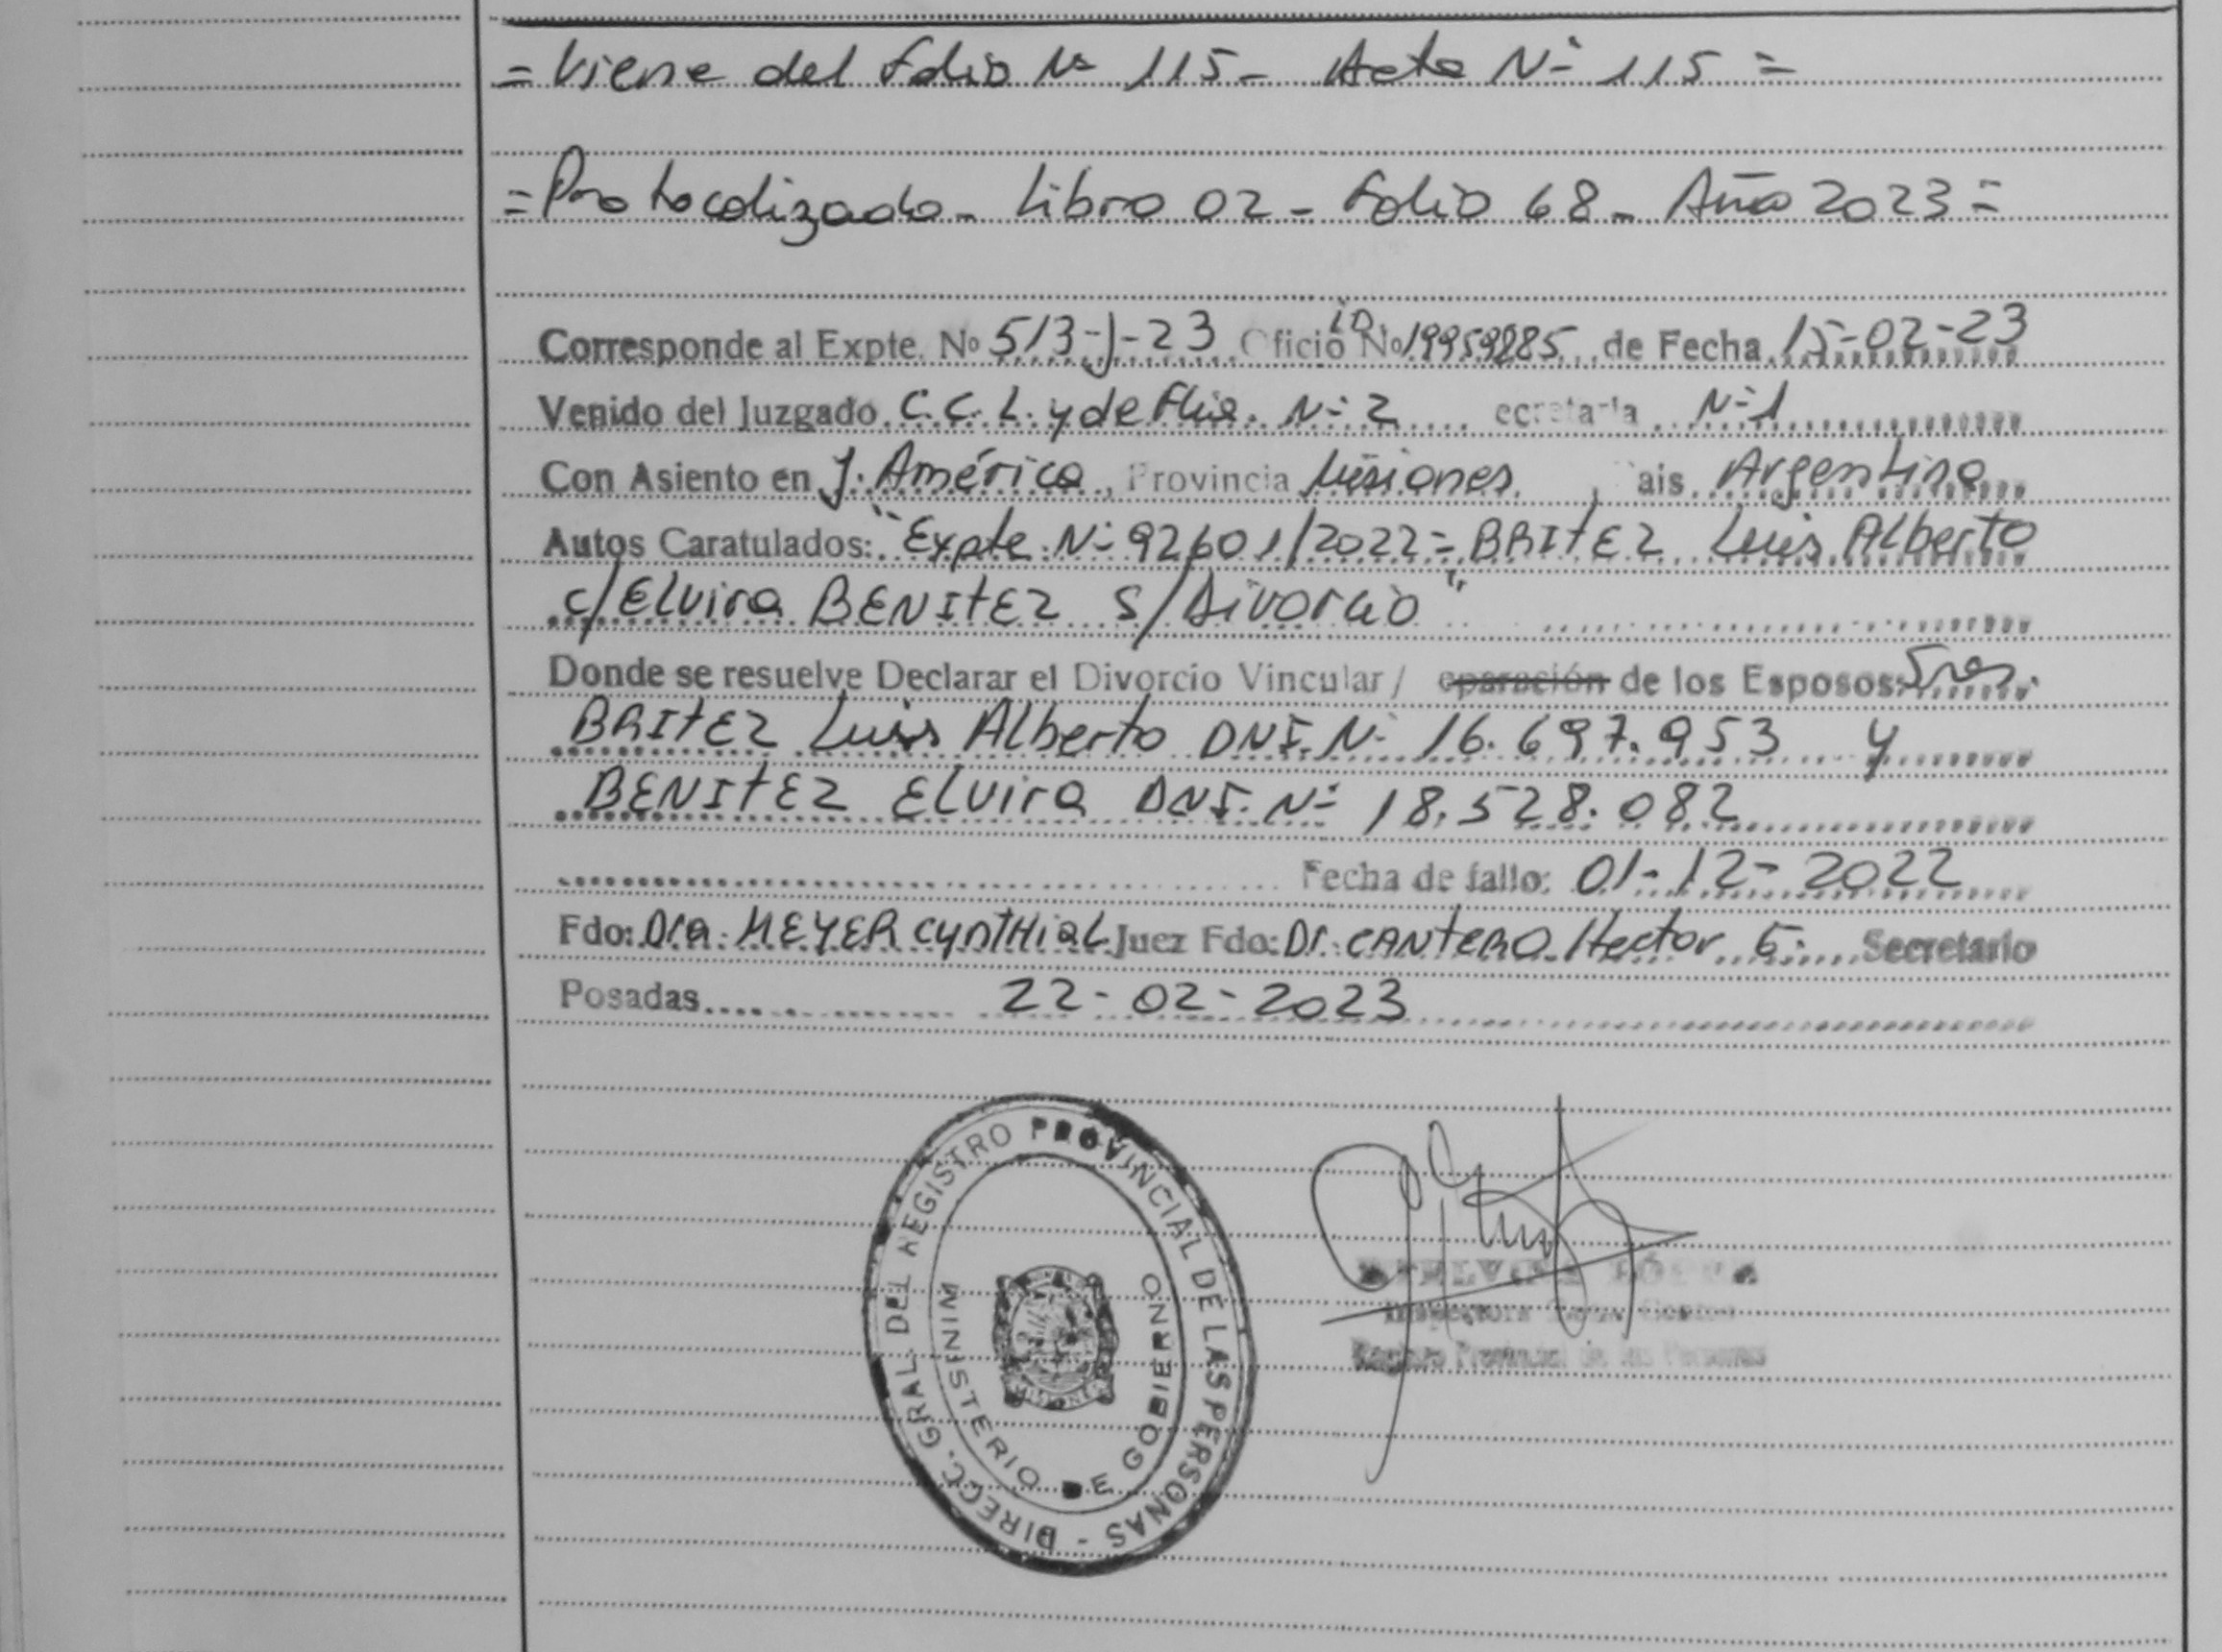 = Viene del Folio Nº 115 - Acta Nº 115 =
= Protocolizado - Libro 02 - Folio 68 - Año 2023 =
Corresponde al Expte. Nº 513-J-23 Oficio ID Nº 19959285 de Fecha 15-02-23
Venido del Juzgado C.C.L. y de Flia. Nº 2 ecretaria Nº 1
Con Asiento en J. América, Provincia Misiones, ais Argentina
Autos Caratulados: "Expte Nº 92601/2022 = BRITEZ Luis Alberto
c/ Elvira BENITEZ S/ Divorcio"
Donde se resuelve Declarar el Divorcio Vincular / eparación de los Esposos: Sres.
BRITEZ Luis Alberto DNI. Nº 16.697.953 y
BENITEZ Elvira DNI. Nº 18.528.082
Fecha de fallo: 01-12-2022
Fdo: Dra. MEYER Cynthia L Juez Fdo: Dr. CANTERO Hector Secretario
Posadas 22-02-2023
DIRECC. GRAL. DEL REGISTRO PROVINCIAL DE LAS PERSONAS -
MINISTERIO DE GOBIERNO
Inspectora
Registro Provincial de las Personas